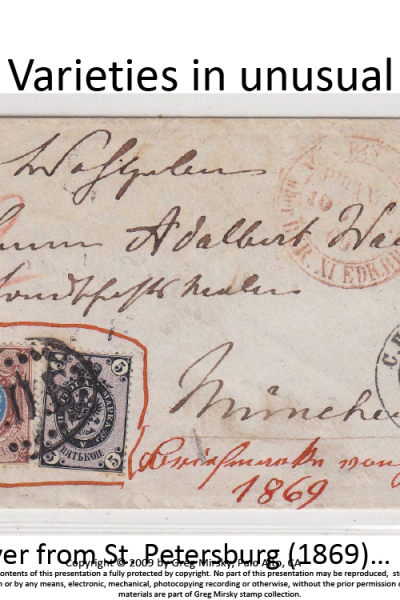 Varieties in unusual
Wohlgeboren
Adalbert Wa
München
5 5
ПЯТЬ КОП
5 5
Briefmarke von
1869
ver from St. Petersburg (1869)...
Copyright © 2009 by Greg Mirsky, Palo Alto, CA
ontents of this presentation a fully protected by copyright. No part of this presentation may be reproduced, st
n or by any means, electronic, mechanical, photocopying recording or otherwise, without the prior permission o
materials are part of Greg Mirsky stamp collection.